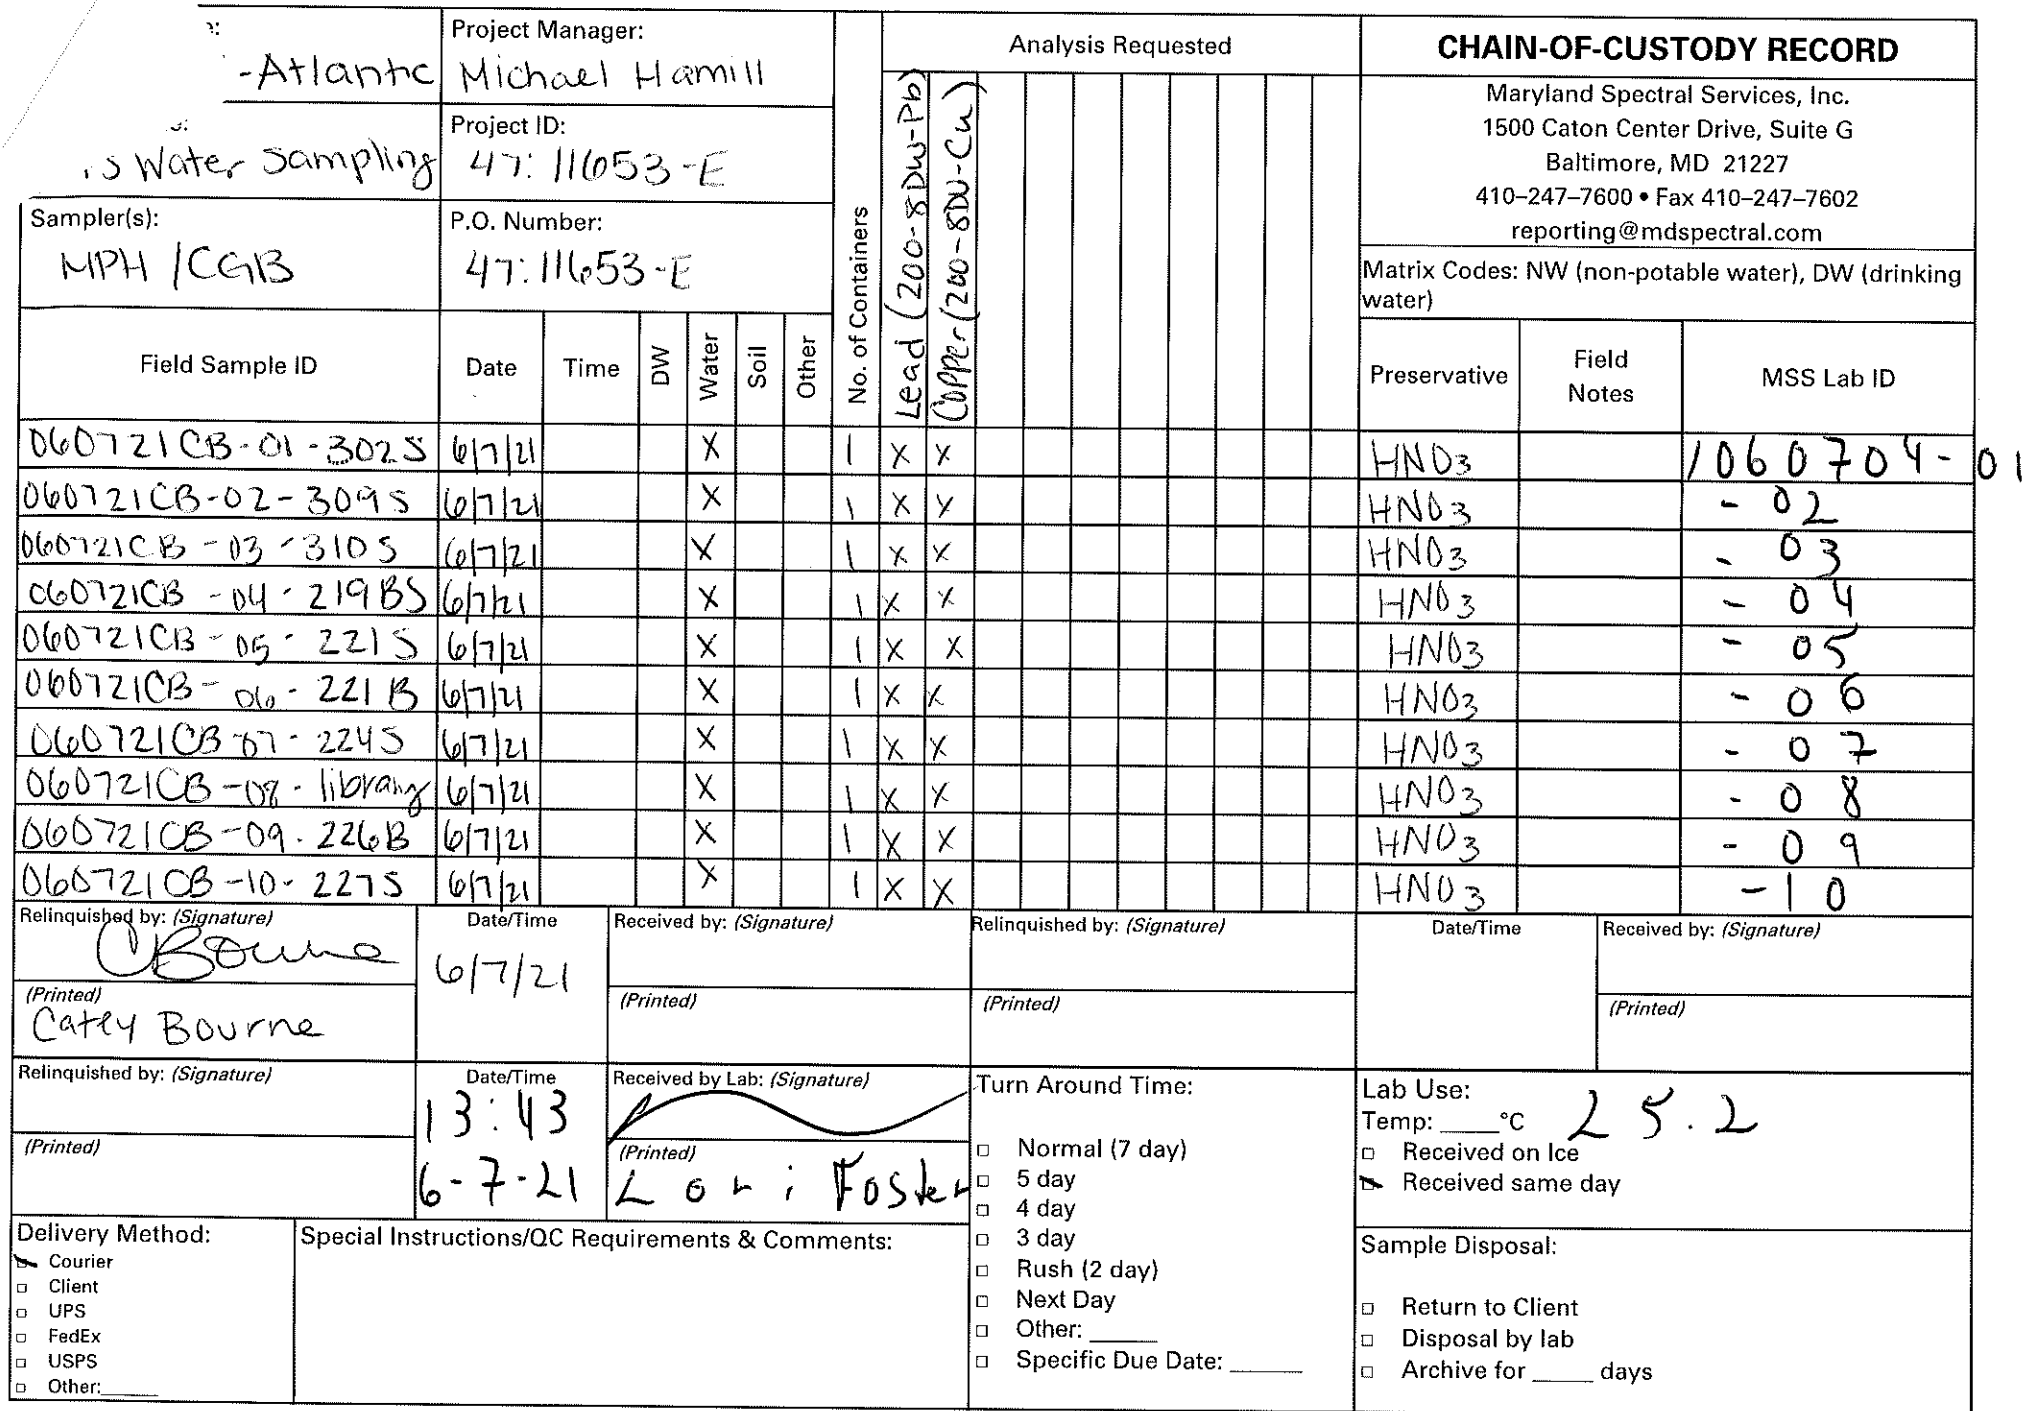 -Atlantic
Project Manager:
Michael Hamill
s Water Sampling
Project ID:
47:11653-E
Sampler(s):
MPH /CGB
P.O. Number:
47:11653-E
No. of Containers
Analysis Requested
Lead (200-8DW-Pb)
Copper (200-8DW-Cu)
CHAIN-OF-CUSTODY RECORD
Maryland Spectral Services, Inc.
1500 Caton Center Drive, Suite G
Baltimore, MD 21227
410–247–7600 • Fax 410–247–7602
reporting@mdspectral.com
Matrix Codes: NW (non-potable water), DW (drinking
water)
Field Sample ID Date Time DW Water Soil Other Preservative Field Notes MSS Lab ID
060721CB-01-302S 6/7/21 X 1 X X HNO3 1060704-01
060721CB-02-309S 6/7/21 X 1 X X HNO3 -02
060721CB-03-310S 6/7/21 X 1 X X HNO3 -03
060721CB-04-219BS 6/7/21 X 1 X X HNO3 -04
060721CB-05-221S 6/7/21 X 1 X X HNO3 -05
060721CB-06-221B 6/7/21 X 1 X X HNO3 -06
060721CB-07-224S 6/7/21 X 1 X X HNO3 -07
060721CB-08-library 6/7/21 X 1 X X HNO3 -08
060721CB-09-226B 6/7/21 X 1 X X HNO3 -09
060721CB-10-227S 6/7/21 X 1 X X HNO3 -10
Relinquished by: (Signature)
CBourne
(Printed)
Catey Bourne
Date/Time
6/7/21
Received by: (Signature)
(Printed)
Relinquished by: (Signature)
(Printed)
Date/Time
Received by: (Signature)
(Printed)
Relinquished by: (Signature)
(Printed)
Date/Time
13:43
6-7-21
Received by Lab: (Signature)
(Printed)
Lori Foster
Turn Around Time:
Normal (7 day)
5 day
4 day
3 day
Rush (2 day)
Next Day
Other: ______
Specific Due Date: ______
Lab Use:
Temp: _____°C 25.2
Received on Ice
Received same day
Delivery Method:
Courier
Client
UPS
FedEx
USPS
Other:_____
Special Instructions/QC Requirements & Comments:
Sample Disposal:
Return to Client
Disposal by lab
Archive for _____ days